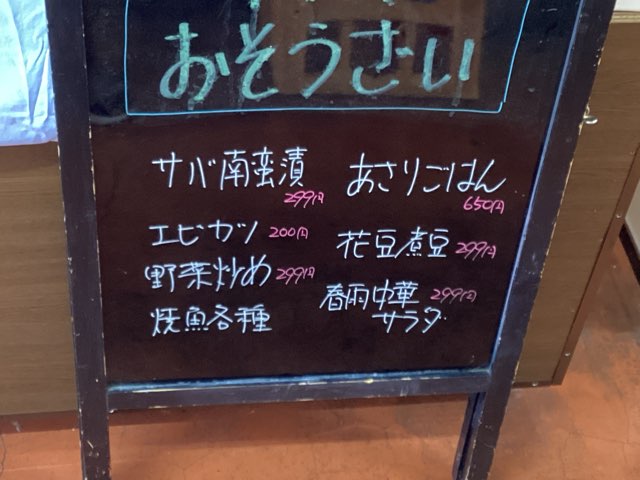 おそうざい
サバ南蛮漬
299円
エビカツ 200円
野菜炒め 299円
焼魚各種
あさりごはん
650円
花豆煮豆 299円
春雨中華 299円
サラダ